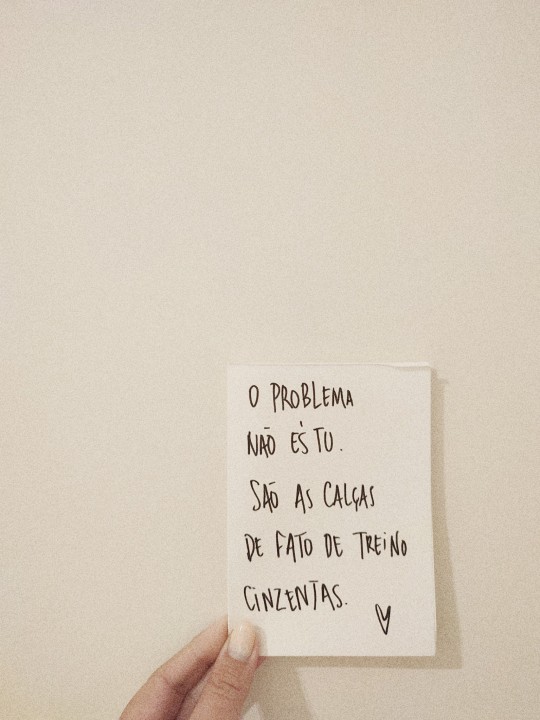 O PROBLEMA
NÃO ÉS TU.
SÃO AS CALÇAS
DE FATO DE TREINO
CINZENTAS.